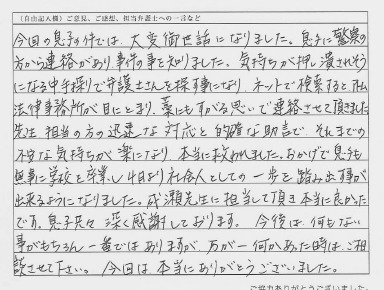 (自由記入欄) ご意見、ご感想、担当弁護士への一言など
今回の息子の件では、大変御世話になりました。息子に警察の
方から連絡があり、事件の事を知りました。気持ちが押し潰されそう
になる中手探りで弁護士さんを探す事になり、ネットで検索すると、
法律事務所が目にとまり、藁にもすがる思いで連絡させて頂きました
先生 担当の方の迅速な対応と的確な助言で、それまでの
不安な気持ちが楽になり、本当に救われました。おかげで息子も
無事に学校を卒業し4月より社会人としての一歩を踏み出す事が
出来るようになりました。成瀬先生に担当して頂き本当に良かった
です。息子共々深く感謝しております。今後は、何もない
事がもちろん一番ではありますが、万が一何かあった時は、ご相
談させて下さい。今回は本当にありがとうございました。
ご協力ありがとうございました。